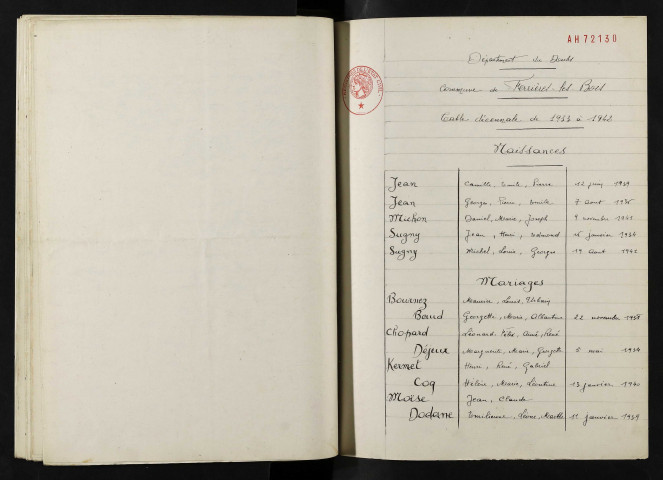 AH72130
Département du Doubs
Commune de Ferrières les Bois
Table décennale de 1933 à 1942
Naissances
Jean Camille, Emile, Pierre 12 juin 1939
Jean Georges, Pierre, Emile 7 août 1935
Michon Daniel, Marie, Joseph 9 novembre
Sugny Jean, Henri, Edmond janvier 1934
Sugny Michel, Louis, Georges 19 août 1942
Mariages
Bournez Maurice, Louis, Urbain
Boud Georgette, Maria, Albertine 22 novembre
Chopard Léonard, Félix, Aimé, René
Déjeux Marguerite, Marie, Georgette 5 mai 1934
Kermel Henri, René, Gabriel
Coq Hélène, Marie, Léontine 13 janvier 1940
Moïse Jean, Claude
Dodane Emilienne, Marthe janvier 1939